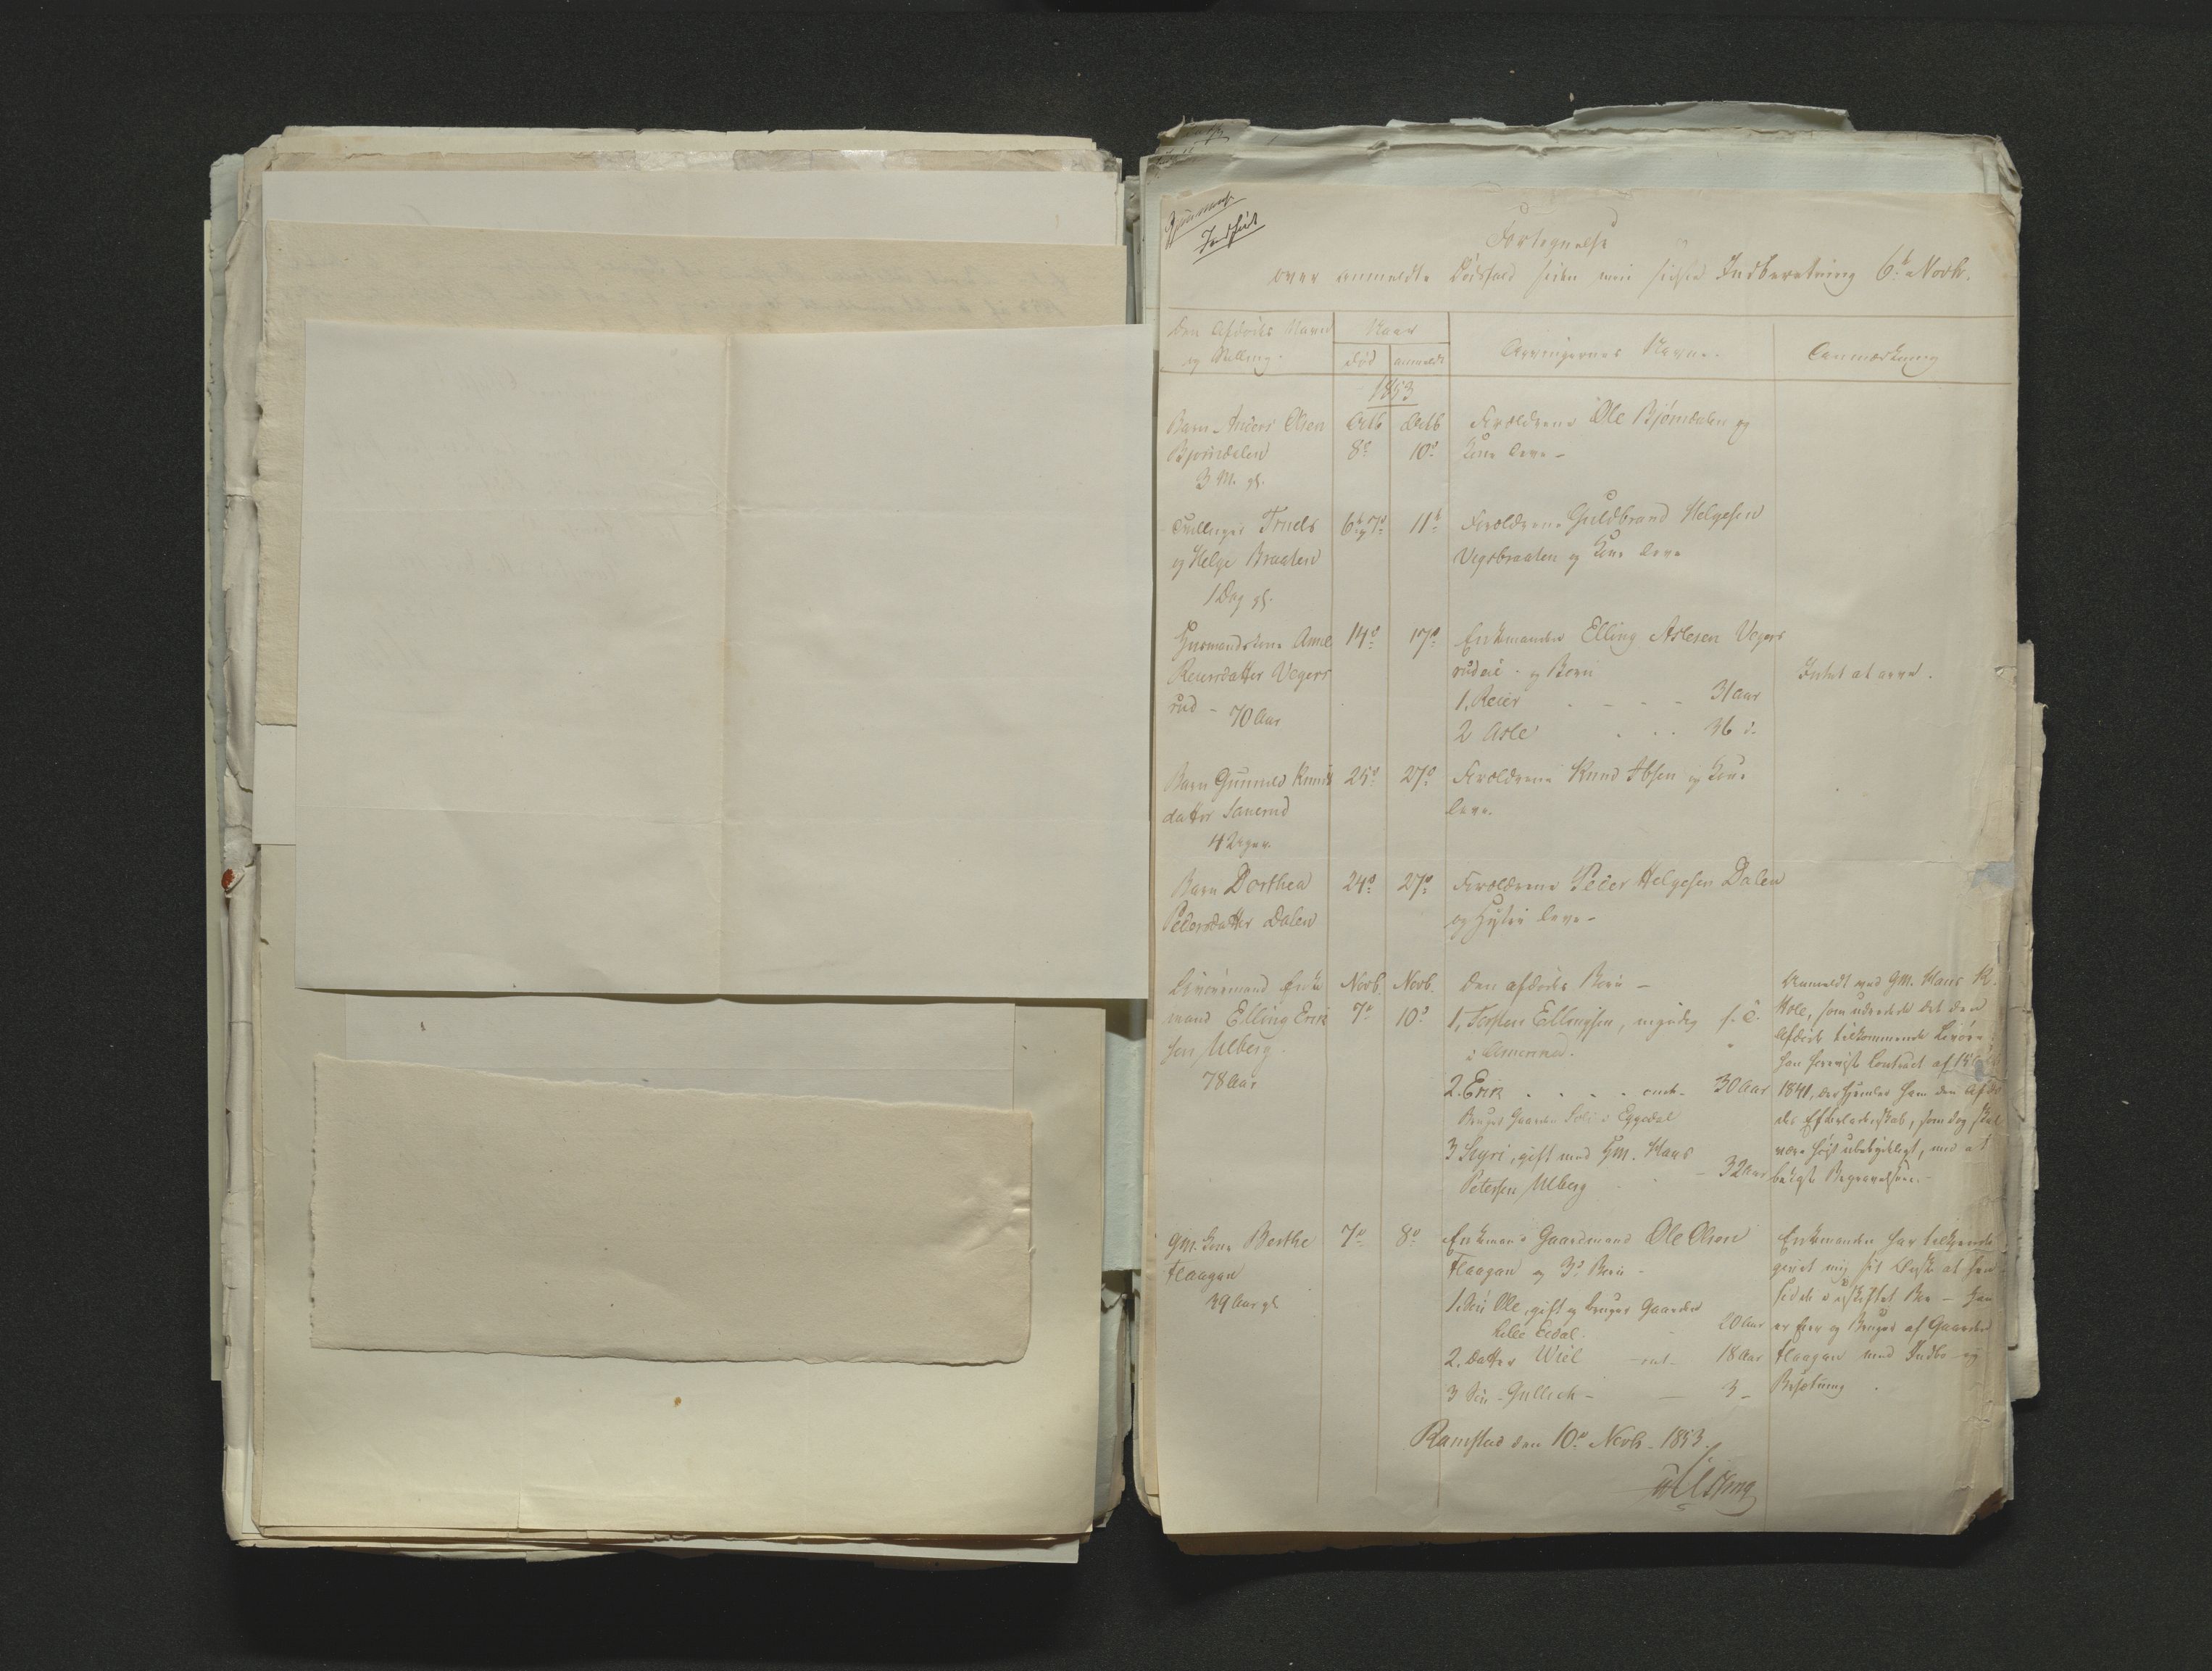 Fortegnelse
over anmeldte Dødsfald siden min sidste Indberetning 6te Novb.
Den Afdødes Navn
og Stilling.
Naar
død
anmeldt
Arvingernes Navne.
Anmærkning
1853
Barn Anders Olsen
Bjørndalen
3 M. gl.
Octb
8de
Octb
10de
Forældrene Ole Bjørndalen og
Kone leve -
Tvillinger Truels
og Helge Braaten
1 Dag gl.
6te og 7de
11te
Forældrene Guldbrand Helgesen
Vegsbraaten og Kone leve
Husmandskone Anne
Reiersdatter Vegers
rud - 70 Aar
14de
17de
Enkemanden Elling Aslesen Vegers
rudeie - og Børn
1, Reier - - - 31 aar
2 Asle - - 36 d.
Intet at arve.
Barn Gunnild Knuds
datter Sanerud
4 Uger.
25de
27de
Forældrene Knud Ibsen og Kone
leve.
Barn Dorthea
Pedersdatter Dalen
24de
27de
Forældrene Peder Helgesen Dalen
og Hustru leve -
Livøremand Enke
mand Elling Erik
sen Ulberg
78 Aar
Novb.
7de
Novb.
10de
Den afdødes Børn -
1, Torsten Ellingsen, myndig f. T.
i Amerika.
2. Erik - - - - 30 Aar
Bruger Gaarden i Eggedal
3 Sigri, gift med Gm. Hans
Petersen Ulberg - 32 Aar
Anmeldt ved Gm. Hans
som udredede det den
Afdøde tilkommende Livøre;
han foreviste Contract af
1841, der hjemler ham den Afdø
des Efterladenskab, som dog skal
være høist ubetydeligt, mod at
bekoste Begravelsen. -
Gm. Kone Berthe
Flaagan
39 Aar gl.
7de
8de
Enkemand Gaardmand Ole Olsen
Flaagan og 3de Børn -
1. Søn Ole, gift og bruger Gaarden
20 Aar
2. Datter - 18 Aar
3 Søn - Gullich - - 3 -
Enkemanden har tilkjende
givet mig sit Ønske at hen
sidde i uskiftet Bo - Han
er Eier og Bruger af Gaarden
Flaagan med Indbo og
Besætning.
Ramstad den 10de Novb. 1853.